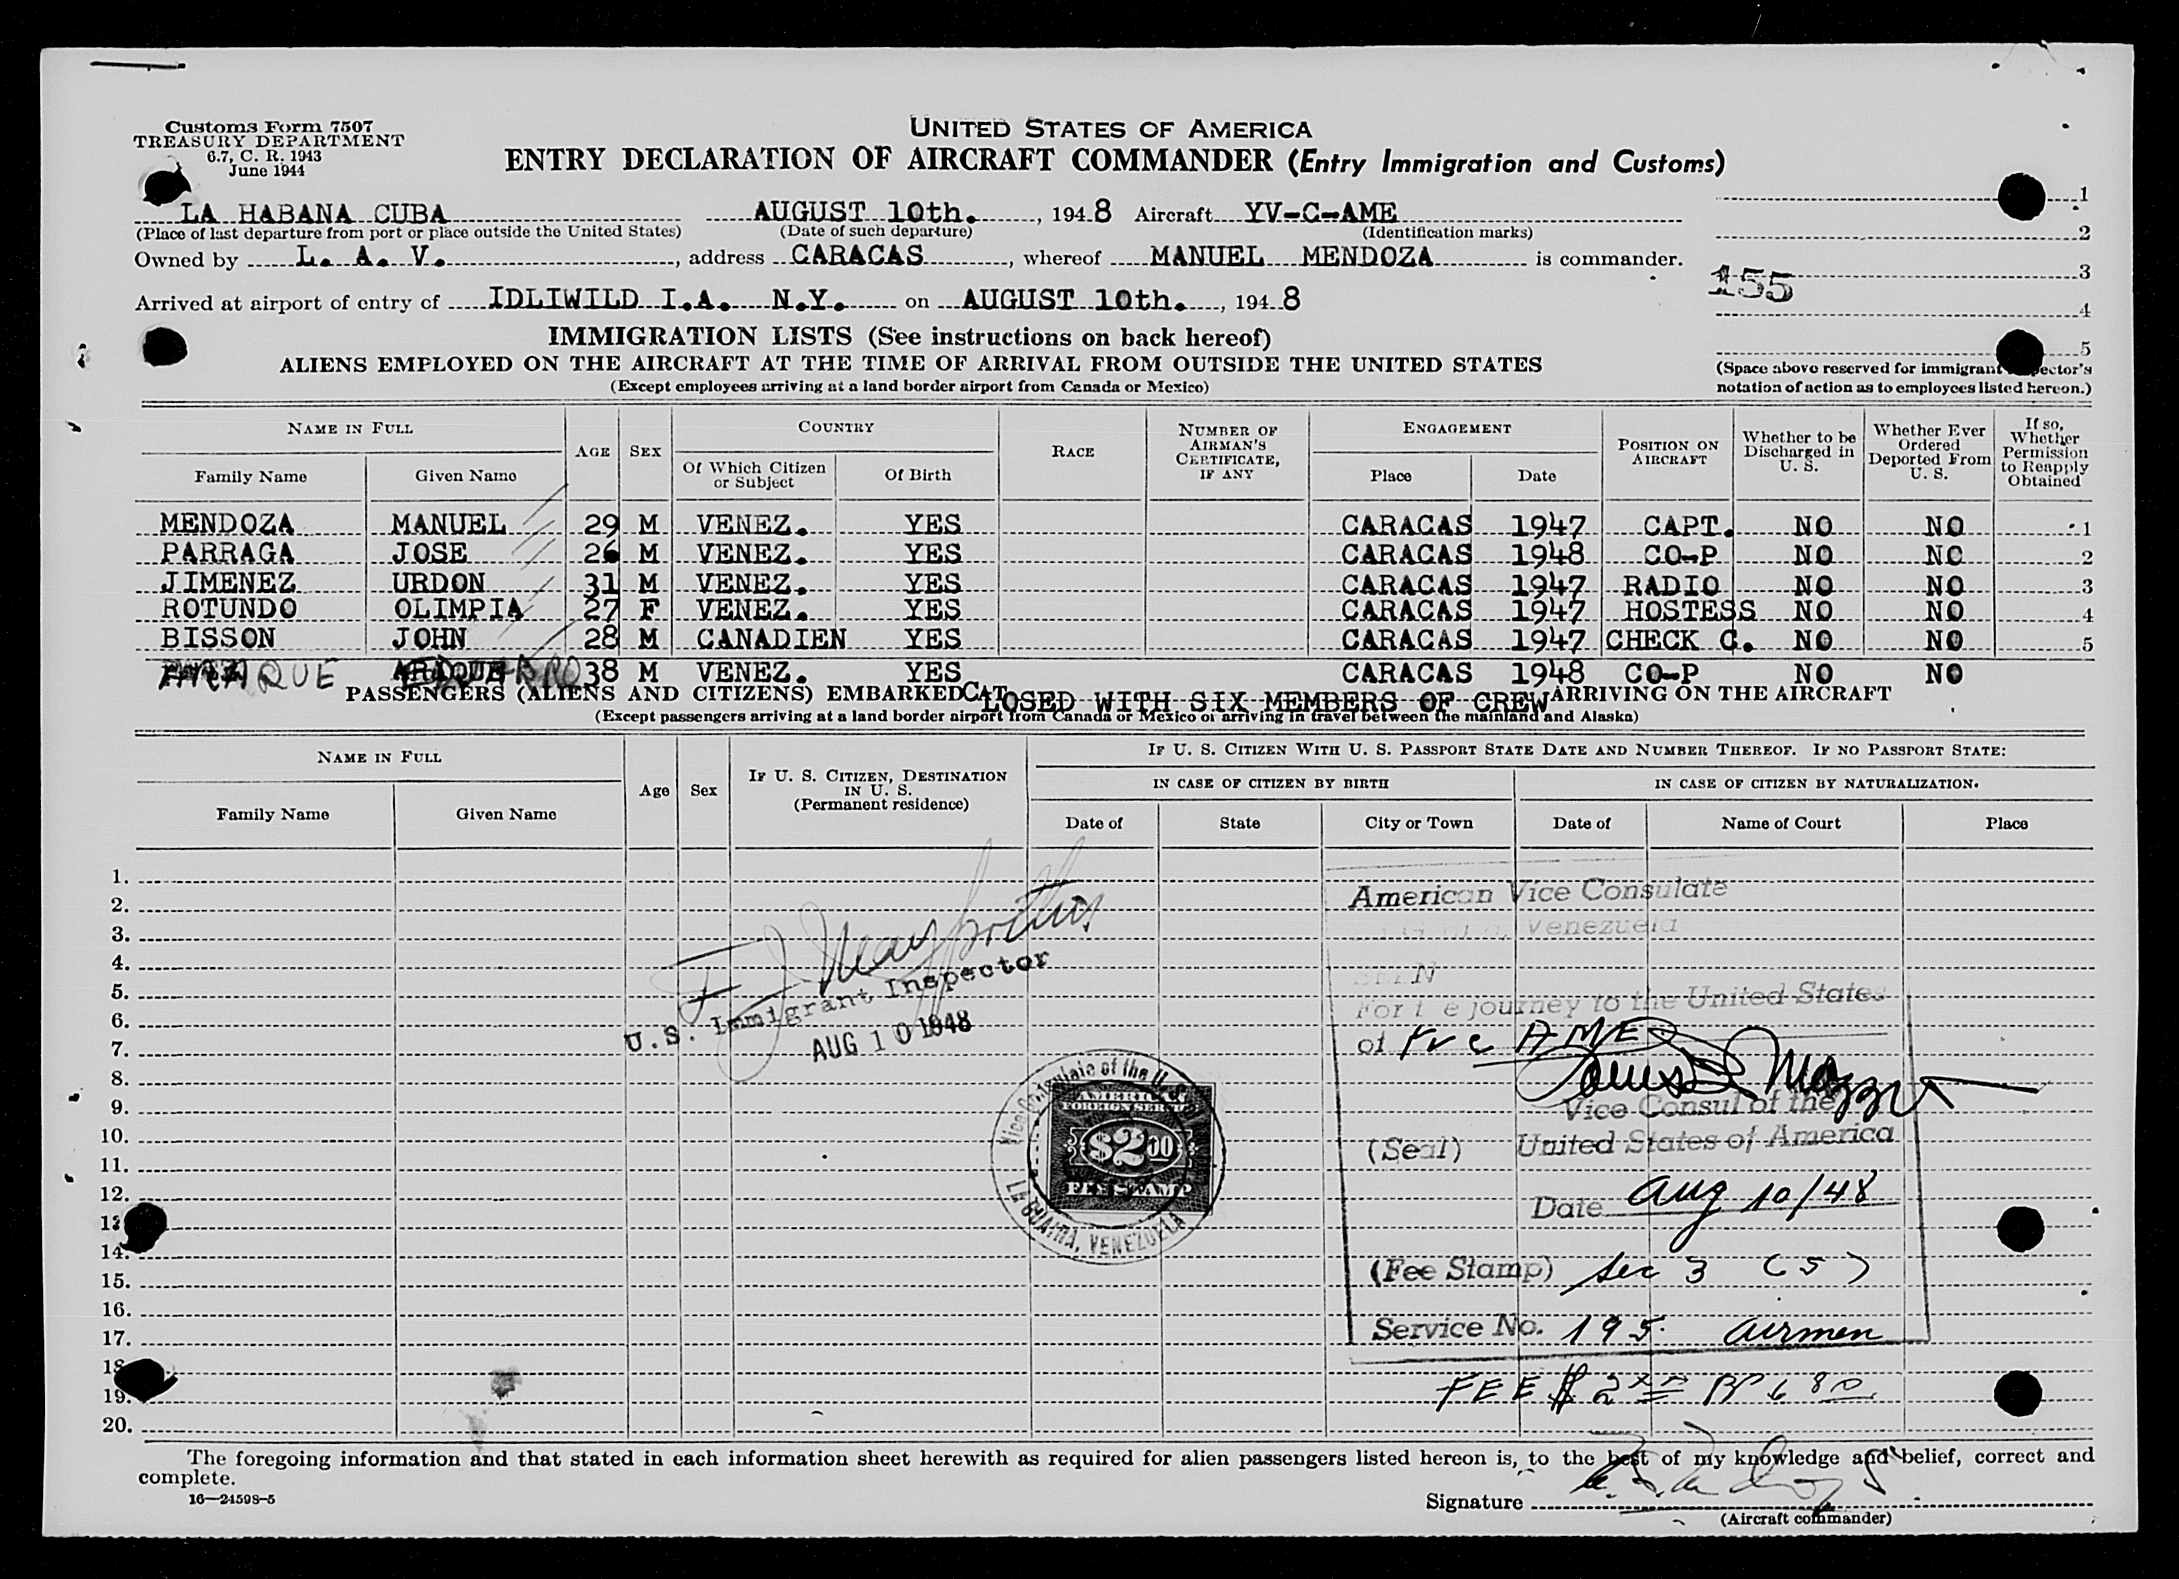 Customs Form 7507
TREASURY DEPARTMENT
6.7, C. R. 1943
June 1944
UNITED STATES OF AMERICA
ENTRY DECLARATION OF AIRCRAFT COMMANDER (Entry Immigration and Customs)
LA HABANA CUBA AUGUST 10th. , 1948 Aircraft YV-C-AME
(Place of last departure from port or place outside the United States) (Date of such departure) (Identification marks)
Owned by L. A. V. , address CARACAS , whereof MANUEL MENDOZA is commander.
Arrived at airport of entry of IDLIWILD I.A. N.Y. on AUGUST 10th. , 1948
1
2
3
155
4
5
(Space above reserved for immigrant inspector's
notation of action as to employees listed hereon.)
IMMIGRATION LISTS (See instructions on back hereof)
ALIENS EMPLOYED ON THE AIRCRAFT AT THE TIME OF ARRIVAL FROM OUTSIDE THE UNITED STATES
(Except employees arriving at a land border airport from Canada or Mexico)
NAME IN FULL AGE SEX COUNTRY RACE NUMBER OF AIRMAN'S CERTIFICATE, IF ANY ENGAGEMENT POSITION ON AIRCRAFT Whether to be Discharged in U. S. Whether Ever Ordered Deported From U. S. If so, Whether Permission to Reapply Obtained
Family Name Given Name Of Which Citizen or Subject Of Birth Place Date
MENDOZA MANUEL 29 M VENEZ. YES CARACAS 1947 CAPT. NO NO 1
PARRAGA JOSE 26 M VENEZ. YES CARACAS 1948 CO-P NO NO 2
JIMENEZ URDON 31 M VENEZ. YES CARACAS 1947 RADIO NO NO 3
ROTUNDO OLIMPIA 27 F VENEZ. YES CARACAS 1947 HOSTESS NO NO 4
BISSON JOHN 28 M CANADIEN YES CARACAS 1947 CHECK C. NO NO 5
38 M VENEZ. YES CARACAS 1948 CO-P NO NO
PASSENGERS (ALIENS AND CITIZENS) EMBARKED AT ARRIVING ON THE AIRCRAFT
CLOSED WITH SIX MEMBERS OF CREW
(Except passengers arriving at a land border airport from Canada or Mexico or arriving in travel between the mainland and Alaska)
NAME IN FULL Age Sex IF U. S. CITIZEN, DESTINATION IN U. S. (Permanent residence) IF U. S. CITIZEN WITH U. S. PASSPORT STATE DATE AND NUMBER THEREOF. IF NO PASSPORT STATE:
IN CASE OF CITIZEN BY BIRTH IN CASE OF CITIZEN BY NATURALIZATION.
Family Name Given Name Date of State City or Town Date of Name of Court Place
1.
2.
3.
4.
5.
6.
7.
8.
9.
10.
11.
12.
13
14.
15.
16.
17.
18
19.
20.
U.S. Immigrant Inspector
AUG 10 1948
Vice Consulate of the U.
AMERICAN
FOREIGN SERVICE
$2.00
FEE STAMP
LA GUAIRA, VENEZUELA
American Vice Consulate
Venezuela
For the journey to the United States
of AME
Vice Consul of the
(Seal) United States of America
Date Aug 10/48
(Fee Stamp) Sec 3 (5)
Service No. 195. airmen
FEE $2
The foregoing information and that stated in each information sheet herewith as required for alien passengers listed hereon is, to the best of my knowledge and belief, correct and
complete.
16—24598-5
Signature
(Aircraft commander)